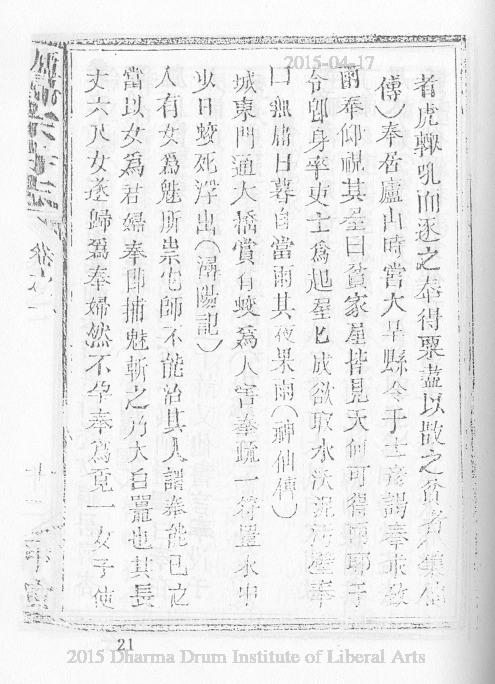 2015-04-17
者虎輒吼而逐之奉得粟盡以散之貧者
傳)奉居廬山時嘗大旱縣令于士彥謂奉求救
酺奉仰視其屋曰貧家屋皆見天何可得雨耶于
令卽身率吏士爲起屋已成欲取水沃泥塗壁奉
曰無庸日暮自當雨其夜果雨(神仙傳)
城東門通大橋嘗有蛟爲人害奉疏一符置水中
少日蛟死浮出(潯陽記)
人有女爲魅所祟巫師不能治其人謂奉能已之
當以女爲君婦奉卽捕魅斬之乃大白鼉也其長
丈六尺女遂歸爲奉婦然不孕奉爲覓一女子使
21
2015 Dharma Drum Institute of Liberal Arts